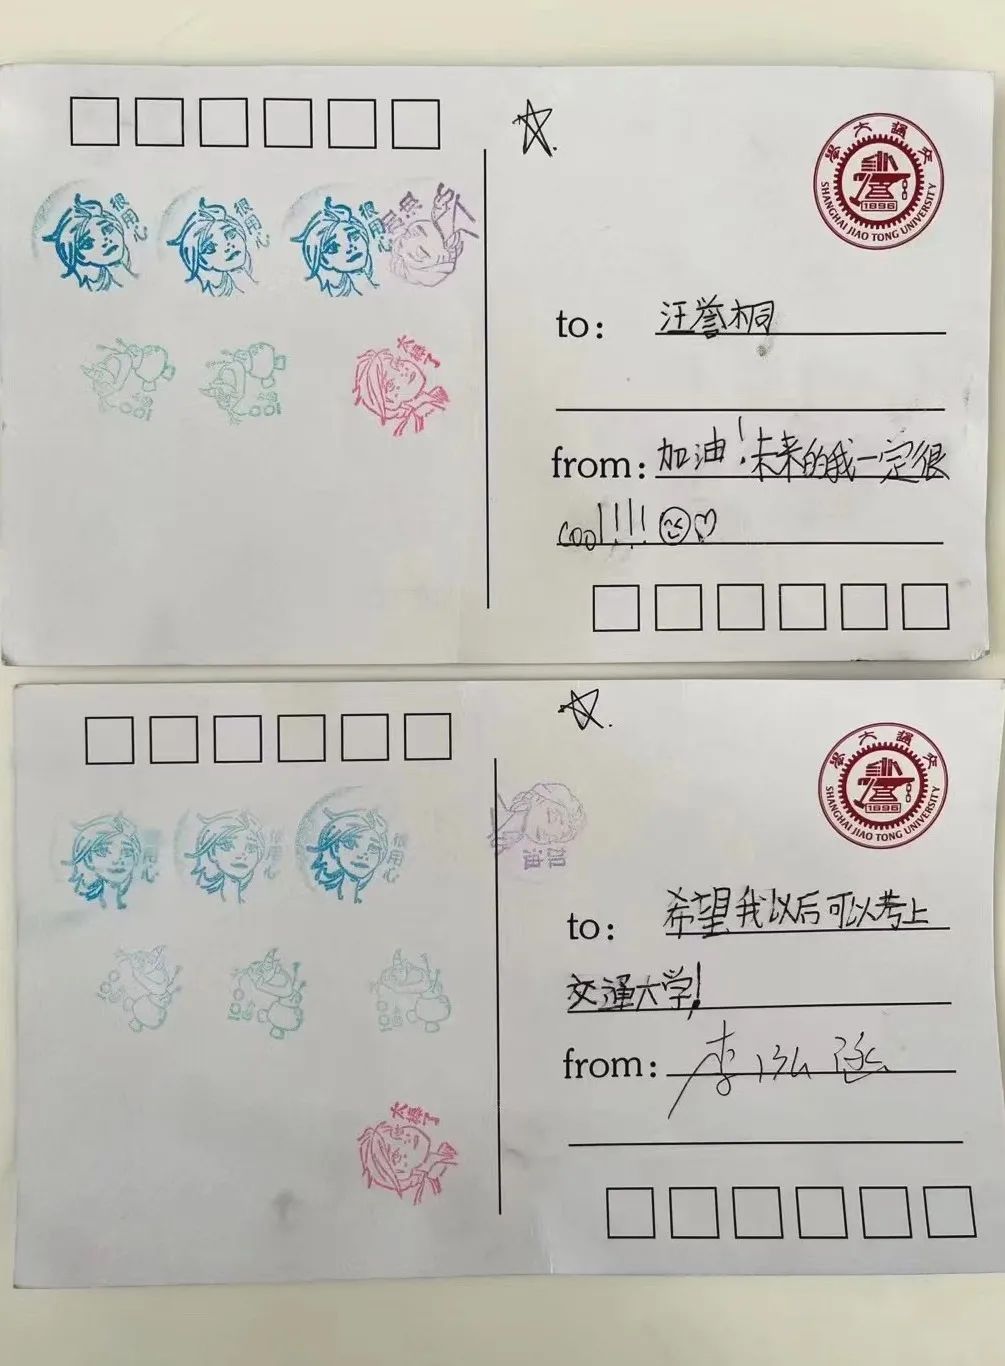 交通大學
SHANGHAI JIAO TONG UNIVERSITY
1896
很用心
很用心
很用心
太棒了
to: 汪誉桐
from: 加油！未来的我一定很
cool!!!!
交通大學
SHANGHAI JIAO TONG UNIVERSITY
1896
很用心
很用心
很用心
太棒了
to: 希望我以后可以考上
交通大学！
from: 李泓